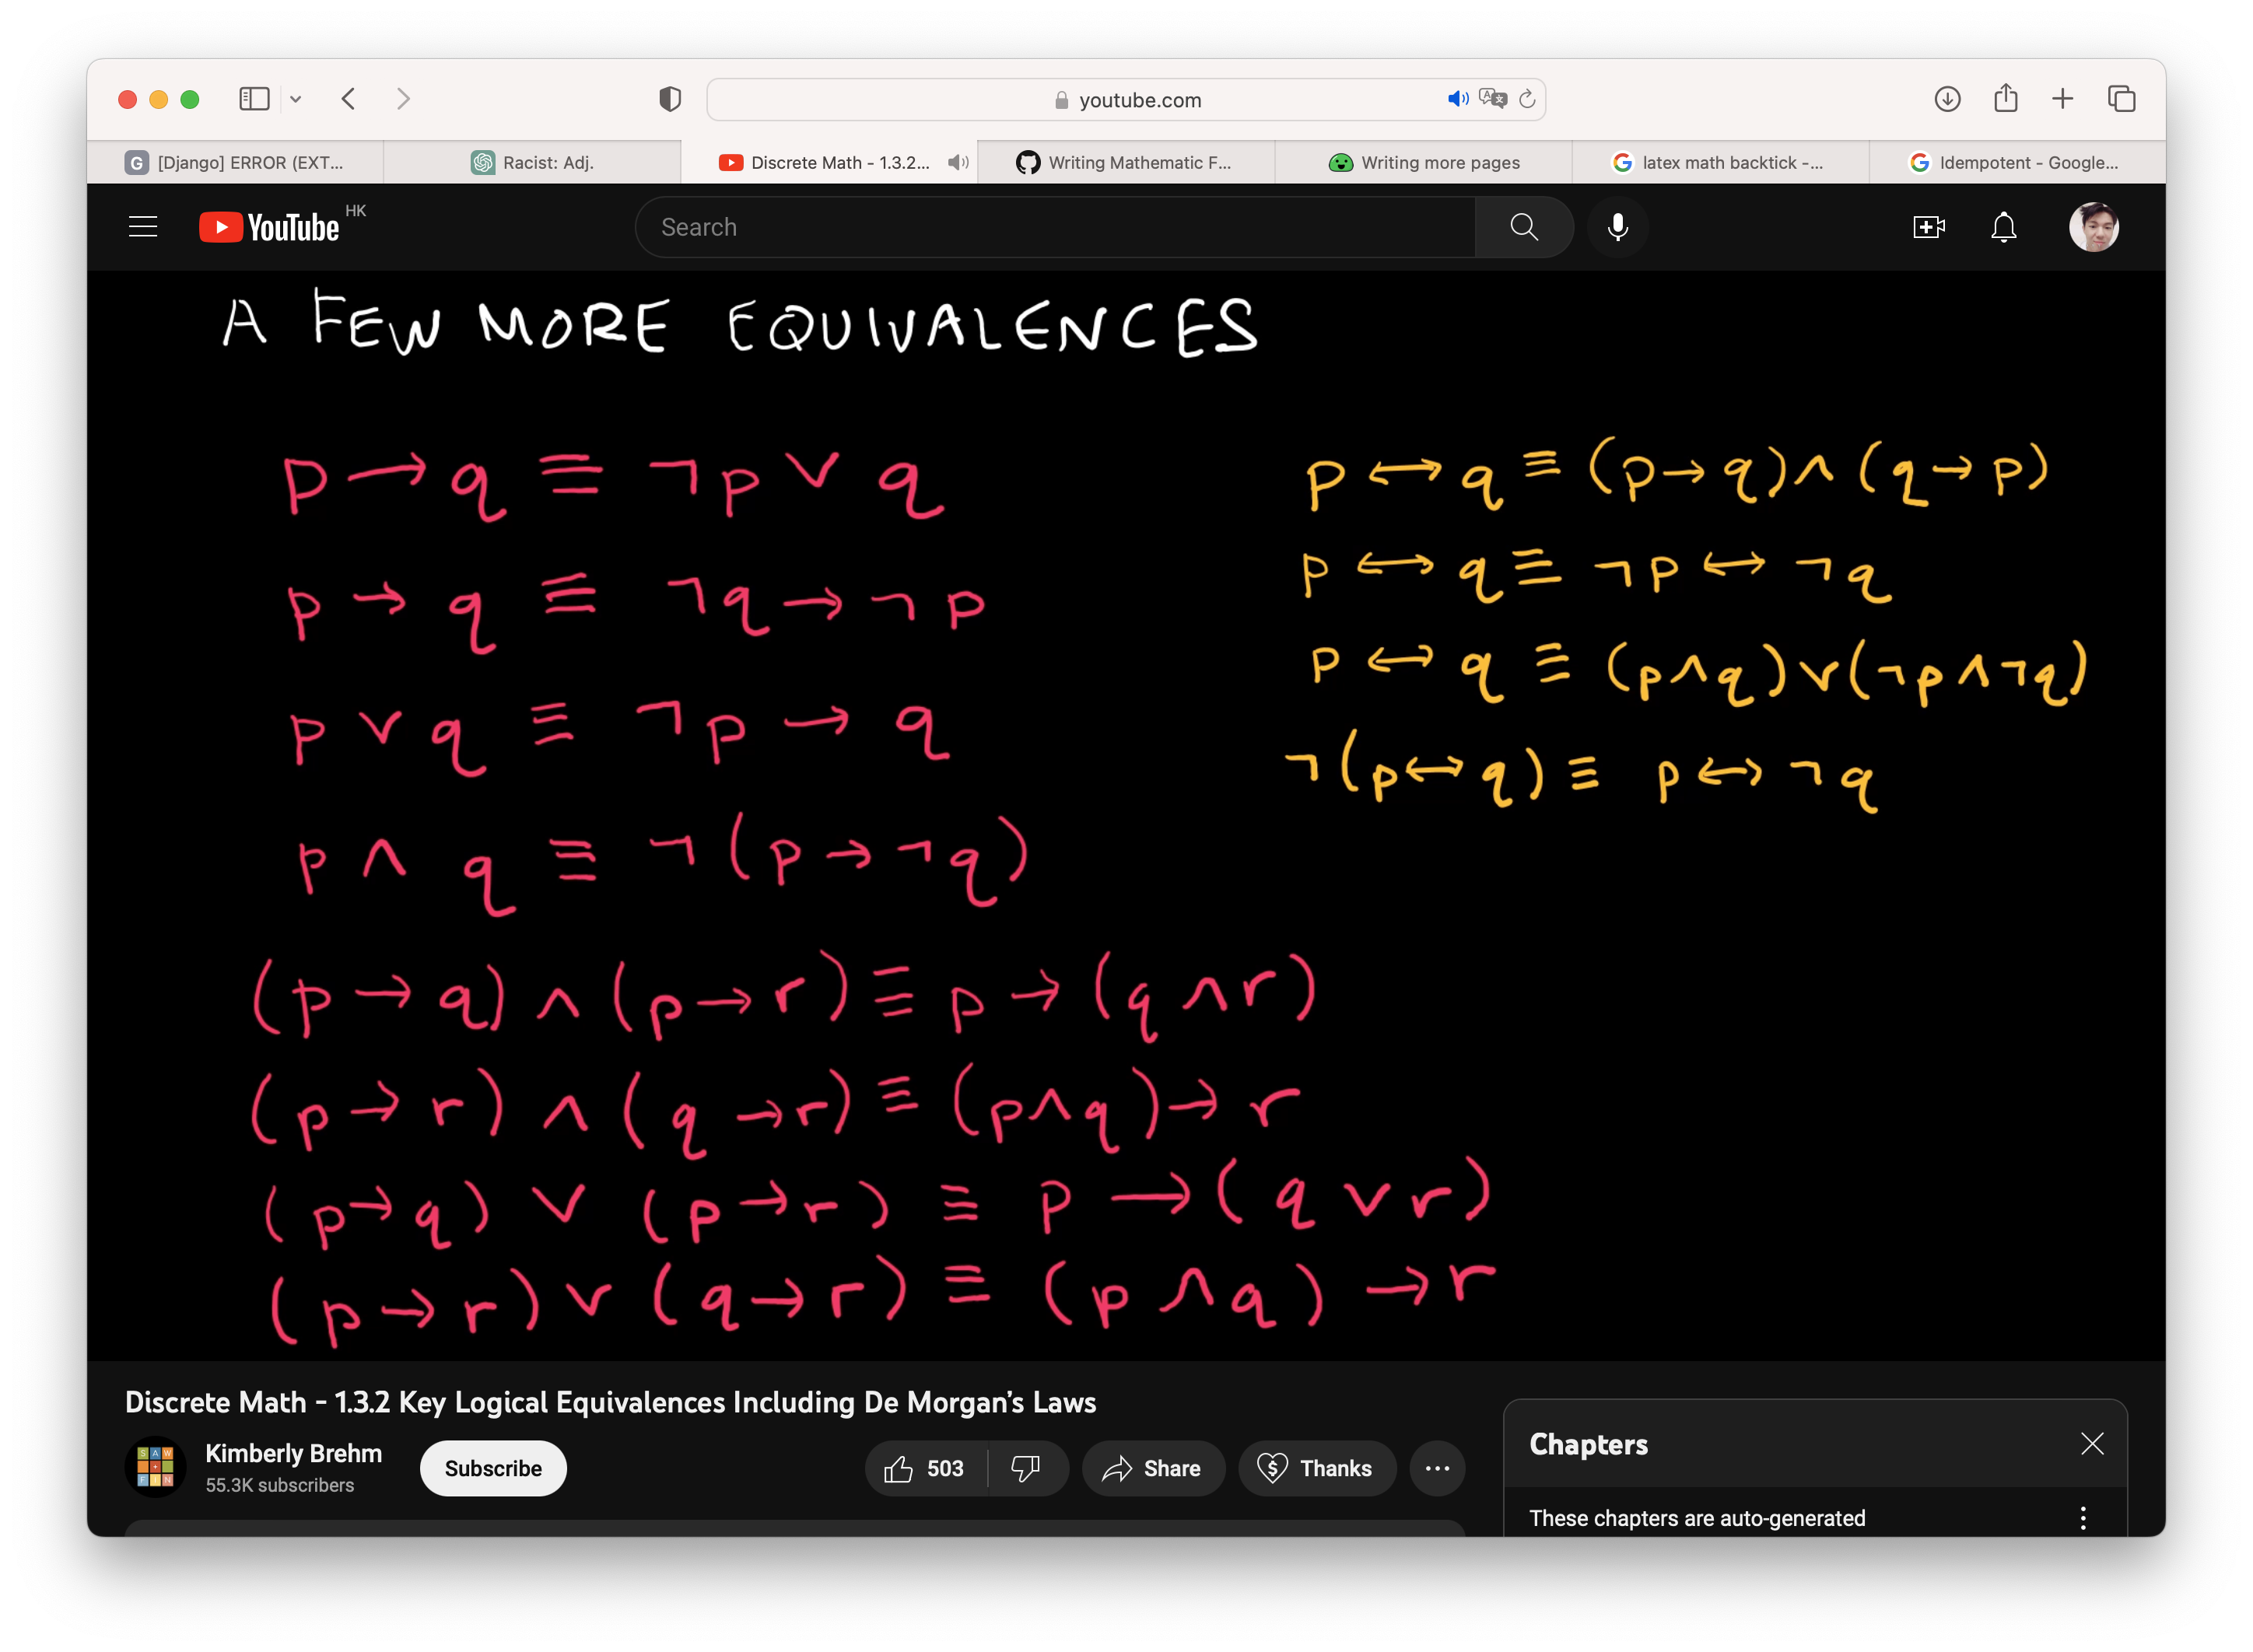 youtube.com
[Django] ERROR (EXT...
Racist: Adj.
Discrete Math - 1.3.2...
Writing Mathematic F...
Writing more pages
latex math backtick -...
Idempotent - Google...
YouTube HK
Search
A FEW MORE EQUIVALENCES
p → q ≡ ¬p ∨ q
p → q ≡ ¬q → ¬p
p ∨ q ≡ ¬p → q
p ∧ q ≡ ¬(p → ¬q)
(p → q) ∧ (p → r) ≡ p → (q ∧ r)
(p → r) ∧ (q → r) ≡ (p ∧ q) → r
(p → q) ∨ (p → r) ≡ p → (q ∨ r)
(p → r) ∨ (q → r) ≡ (p ∧ q) → r
p ↔ q ≡ (p → q) ∧ (q → p)
p ↔ q ≡ ¬p ↔ ¬q
p ↔ q ≡ (p ∧ q) ∨ (¬p ∧ ¬q)
¬(p ↔ q) ≡ p ↔ ¬q
Discrete Math - 1.3.2 Key Logical Equivalences Including De Morgan's Laws
SAW
+
FIN
Kimberly Brehm
55.3K subscribers
Subscribe
503
Share
Thanks
Chapters
These chapters are auto-generated